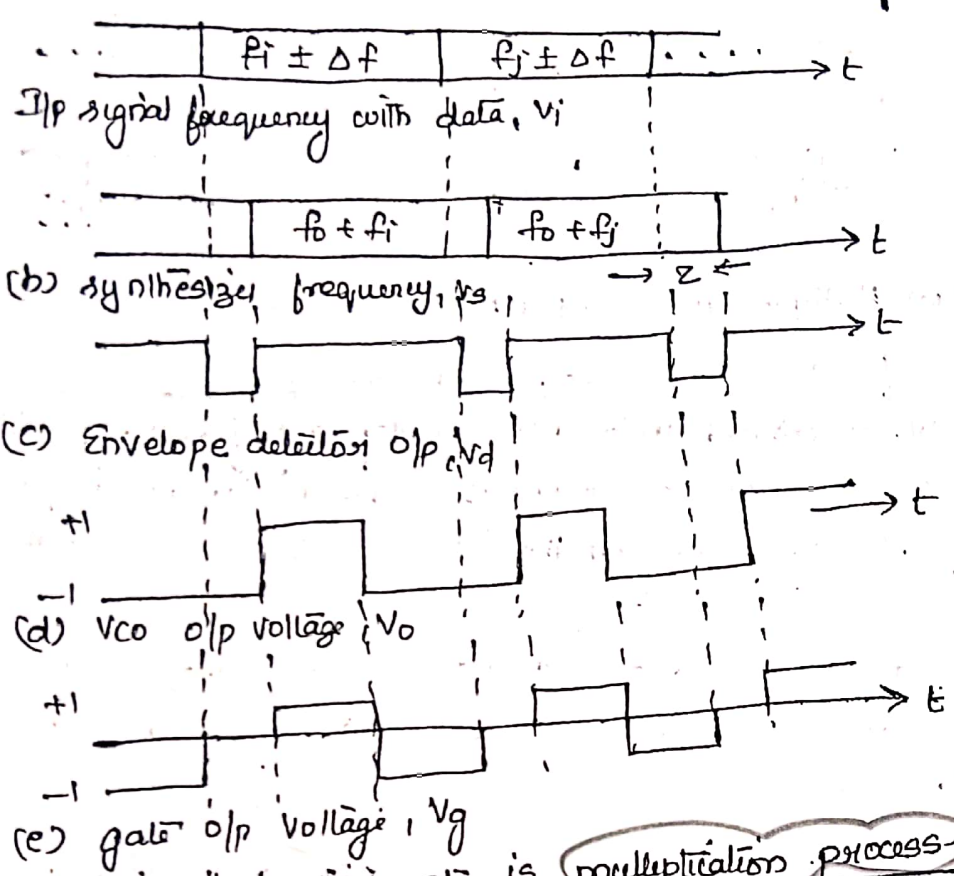 . . . fi ± Δf fj ± Δf . . . . t
I/p signal frequency with data, Vi
. . . fo + fi fo + fj t
(b) synthesizer frequency, Vs z
t
(c) Envelope detector o/p, Vd
+1 t
-1
(d) VCO o/p voltage, Vo
+1 t
-1
(e) gate o/p voltage, Vg
is multiplication process-